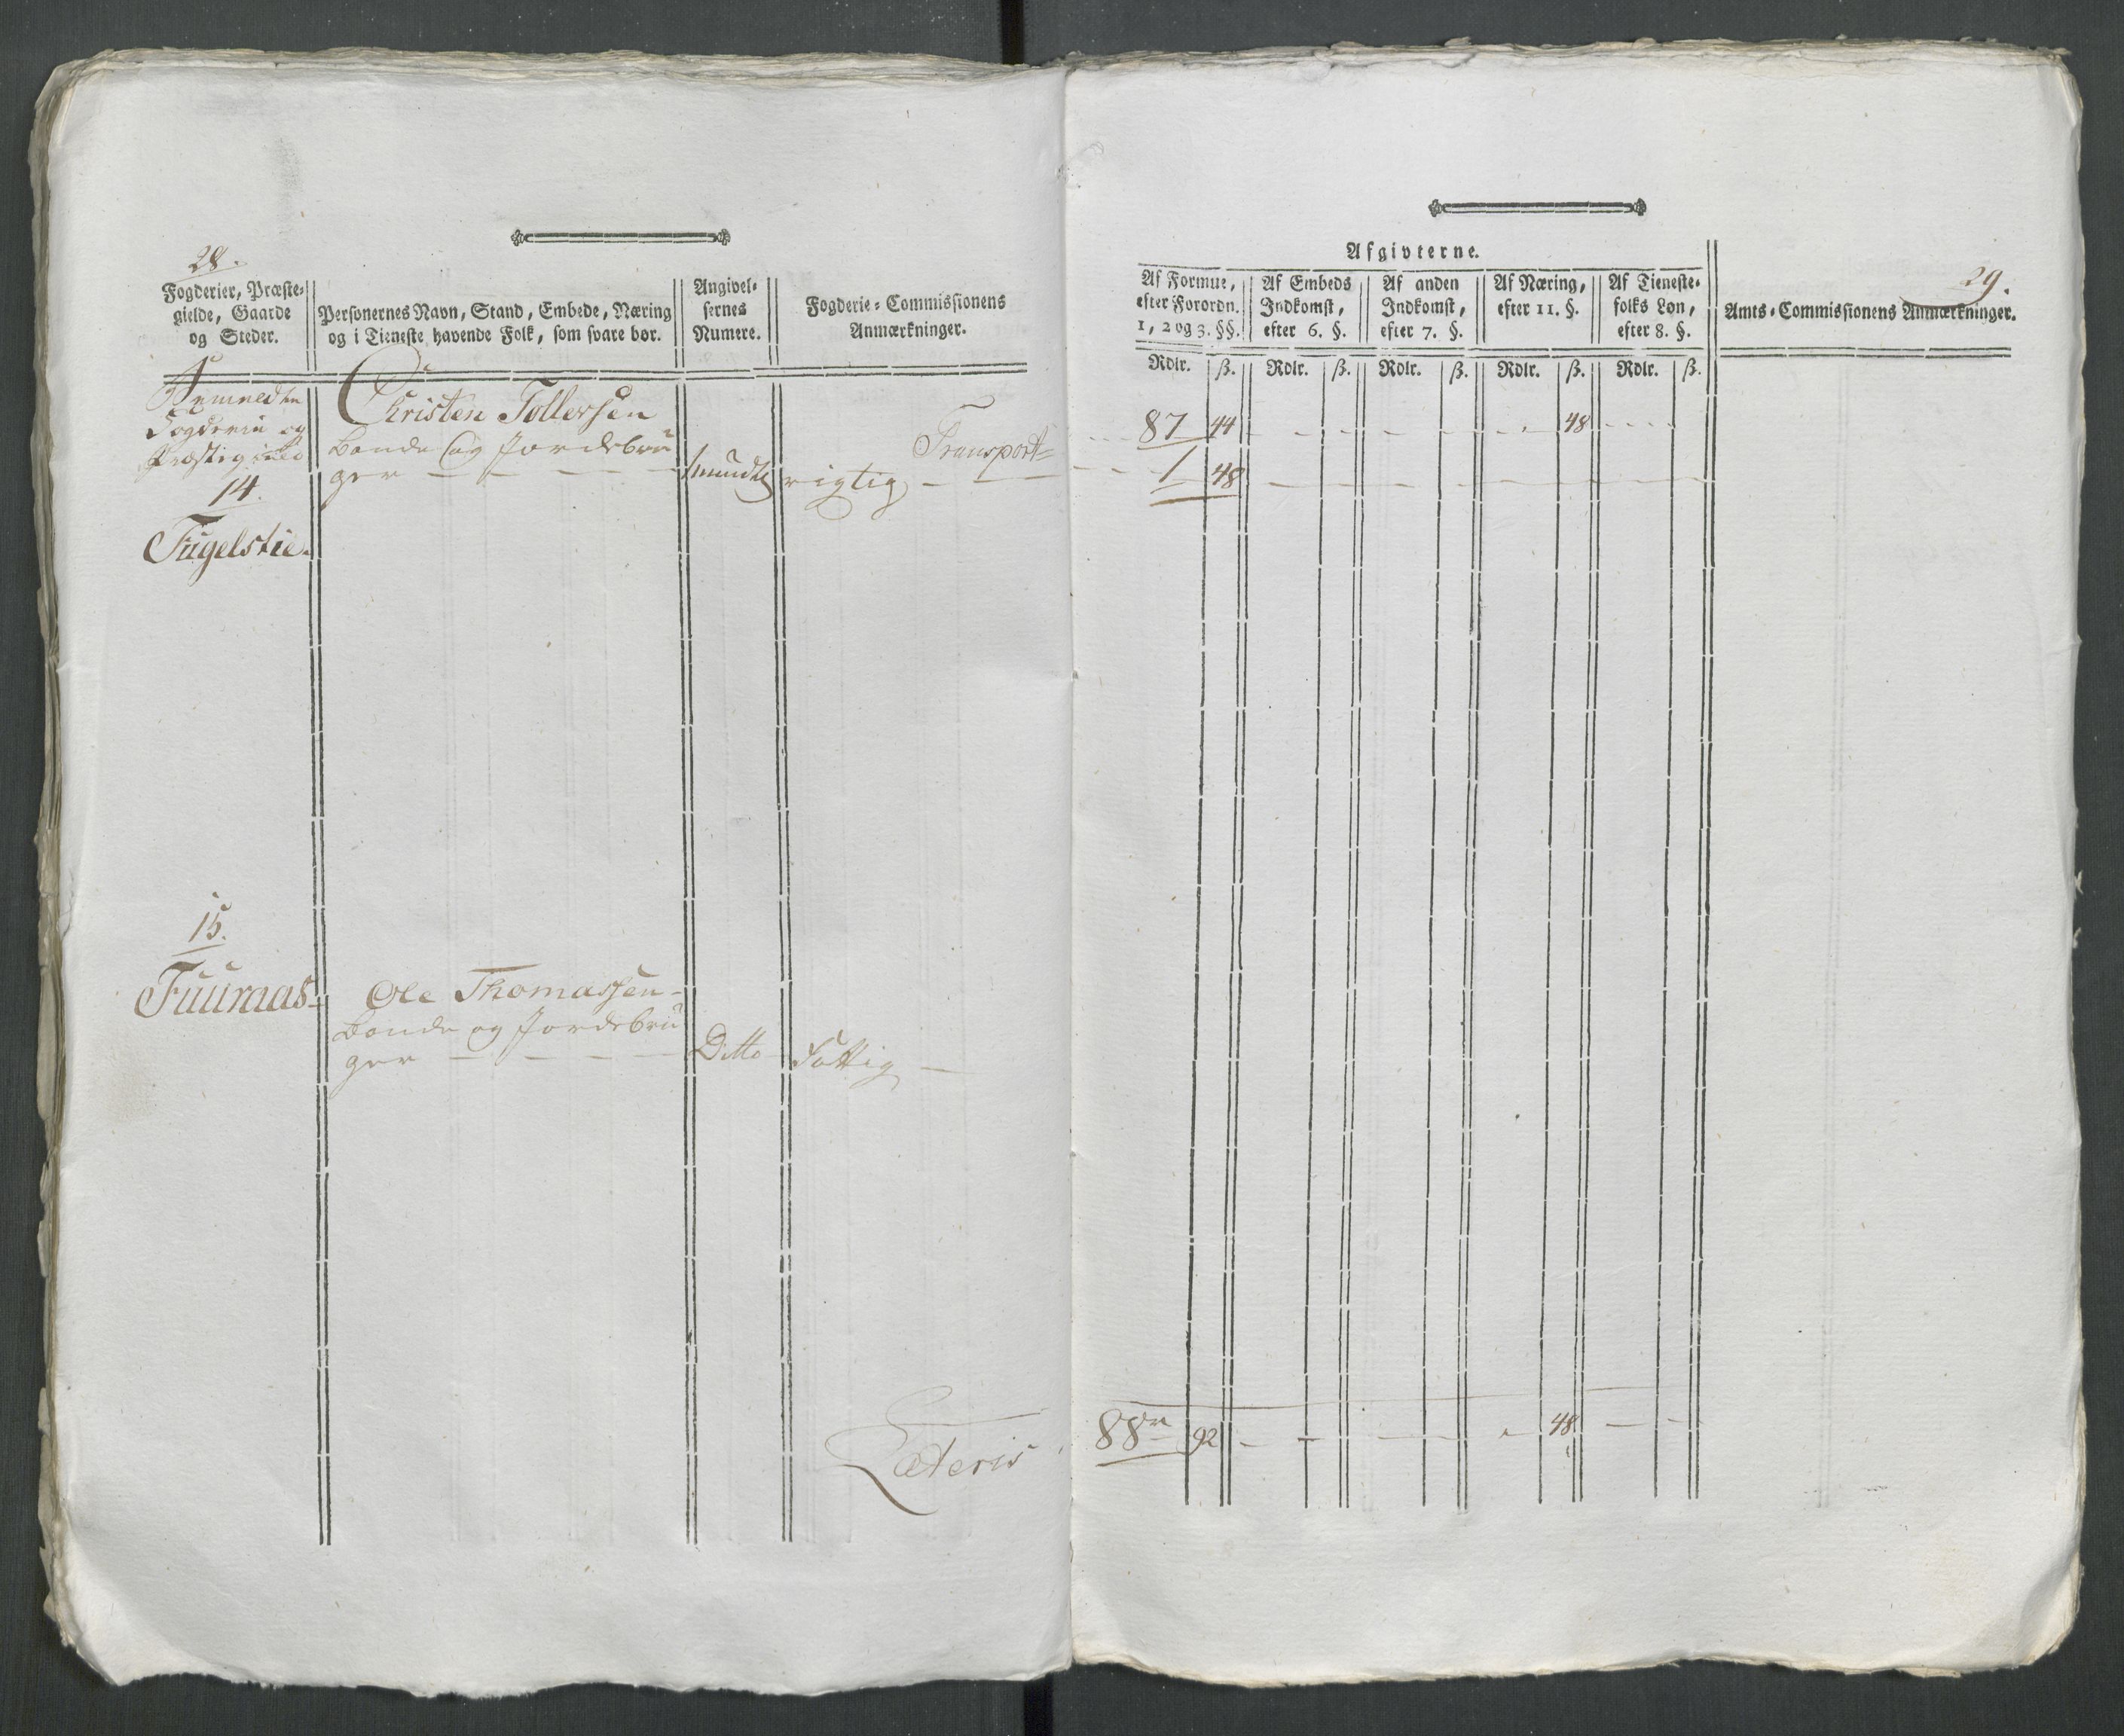 28.
Fogderier, Præste-
gielde, Gaarde
og Steder.
Personernes Navn, Stand, Embede, Næring
og i Tieneste havende Folk, som svare bør.
Angivel-
sernes
Numere.
Fogderie-Commissionens
Anmærkninger.
Fogderie og
Præstegield
14.
Fugelstie.
Christen Tollersen
Bonde og Jordebru
ger
mundtl
rigtig
Transport
15.
Fuuraas
Ole Thomassen
Bonde og Jordebru
ger
Ditto
Fattig
Lateris
29.
Afgivterne.
Af Formue,
efter Forordn.
1, 2 og 3. §§.
Af Embeds
Indkomst,
efter 6. §.
Af anden
Indkomst,
efter 7. §.
Af Næring,
efter 11. §.
Af Tieneste-
folks Løn,
efter 8. §.
Amts-Commissionens Anmærkninger.
Rdlr. ß. Rdlr. ß. Rdlr. ß. Rdlr. ß. Rdlr. ß.
87 44 48
1 48
88 92 48